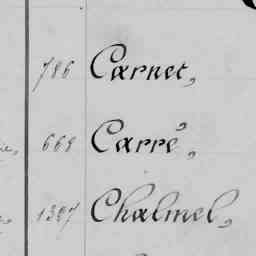 786 Carnet,
668 Carré,
1327 Chalmel,